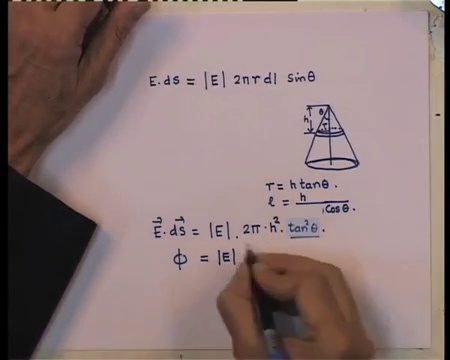 E.ds = |E| 2πr dl sinθ
h θ
r
r = h tanθ.
l = h / Cosθ.
E⃗.ds⃗ = |E|. 2π.h². tan²θ.
φ = |E|